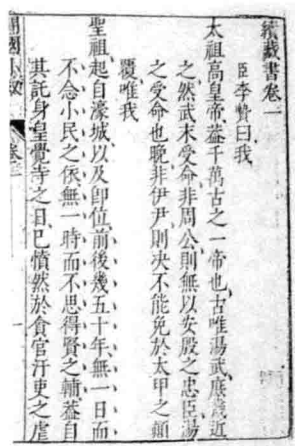 續藏書卷一
臣李贄曰我
太祖高皇帝蓋千萬古之一帝也古唯湯武庶幾近
之然武末受命非周公則無以安殷之忠臣湯
之受命也晚非伊尹則决不能免於太甲之顛
覆唯我
聖祖起自濠城以及即位前後幾五十年無一日而
不念小民之依無一時而不思得賢之輔蓋自
其託身皇覺寺之日已憤然於貪官汙吏之虐